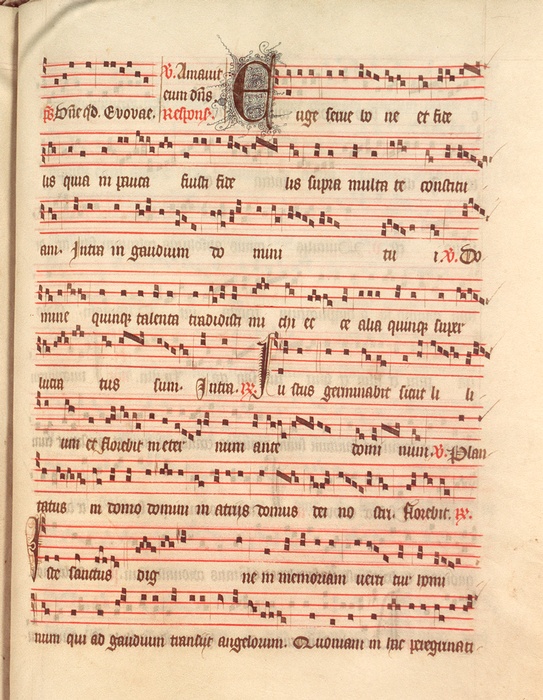 ℣. Amavit
eum dñs
Ps Dñe qd. Evovae. Respons. Euge serve bo ne et fide
lis quia in pauca fuisti fide lis supra multa te constitu
am. Intra in gaudium do mini tu i. ℣. Do
mine quinq talenta tradidisti mi chi ec ce alia quinq super
lucra tus sum. Intra. ℟ Iu stus germinabit sicut li li
um et florebit in eter num ante domi num. ℣. Plan
tatus in domo domini in atriis domus dei no stri. florebit. ℟.
Iste sanctus dig ne in memoriam verti tur homi
num qui ad gaudium transiit angelorum. Quoniam in hac peregrinati